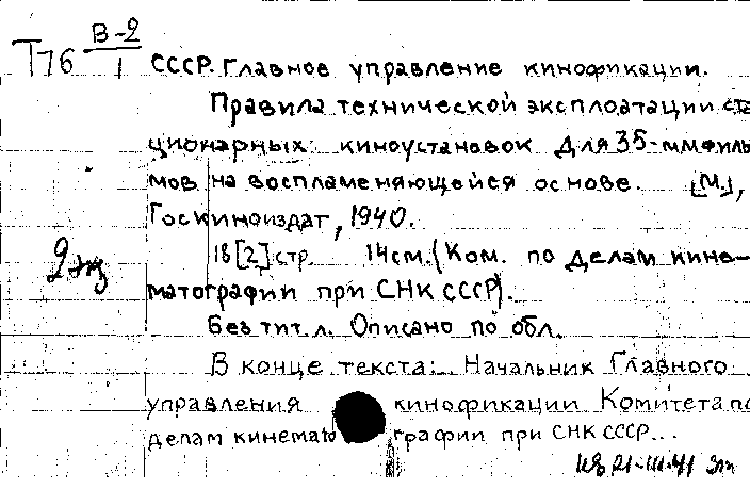 Т76 В-2/1
СССР. Главное управление кинофикации.
Правила технической эксплоатации ста
ционарных киноустановок для 35-ммфиль
мов на воспламеняющейся основе. [М.],
Госкиноиздат, 1940.
18[2] стр. 14см. (Ком. по делам кине-
2 эк
матографии при СНК СССР).
Без тит. л. Описано по обл.
В конце текста: Начальник Главного
управления кинофикации Комитета по
делам кинемато графии при СНК СССР...